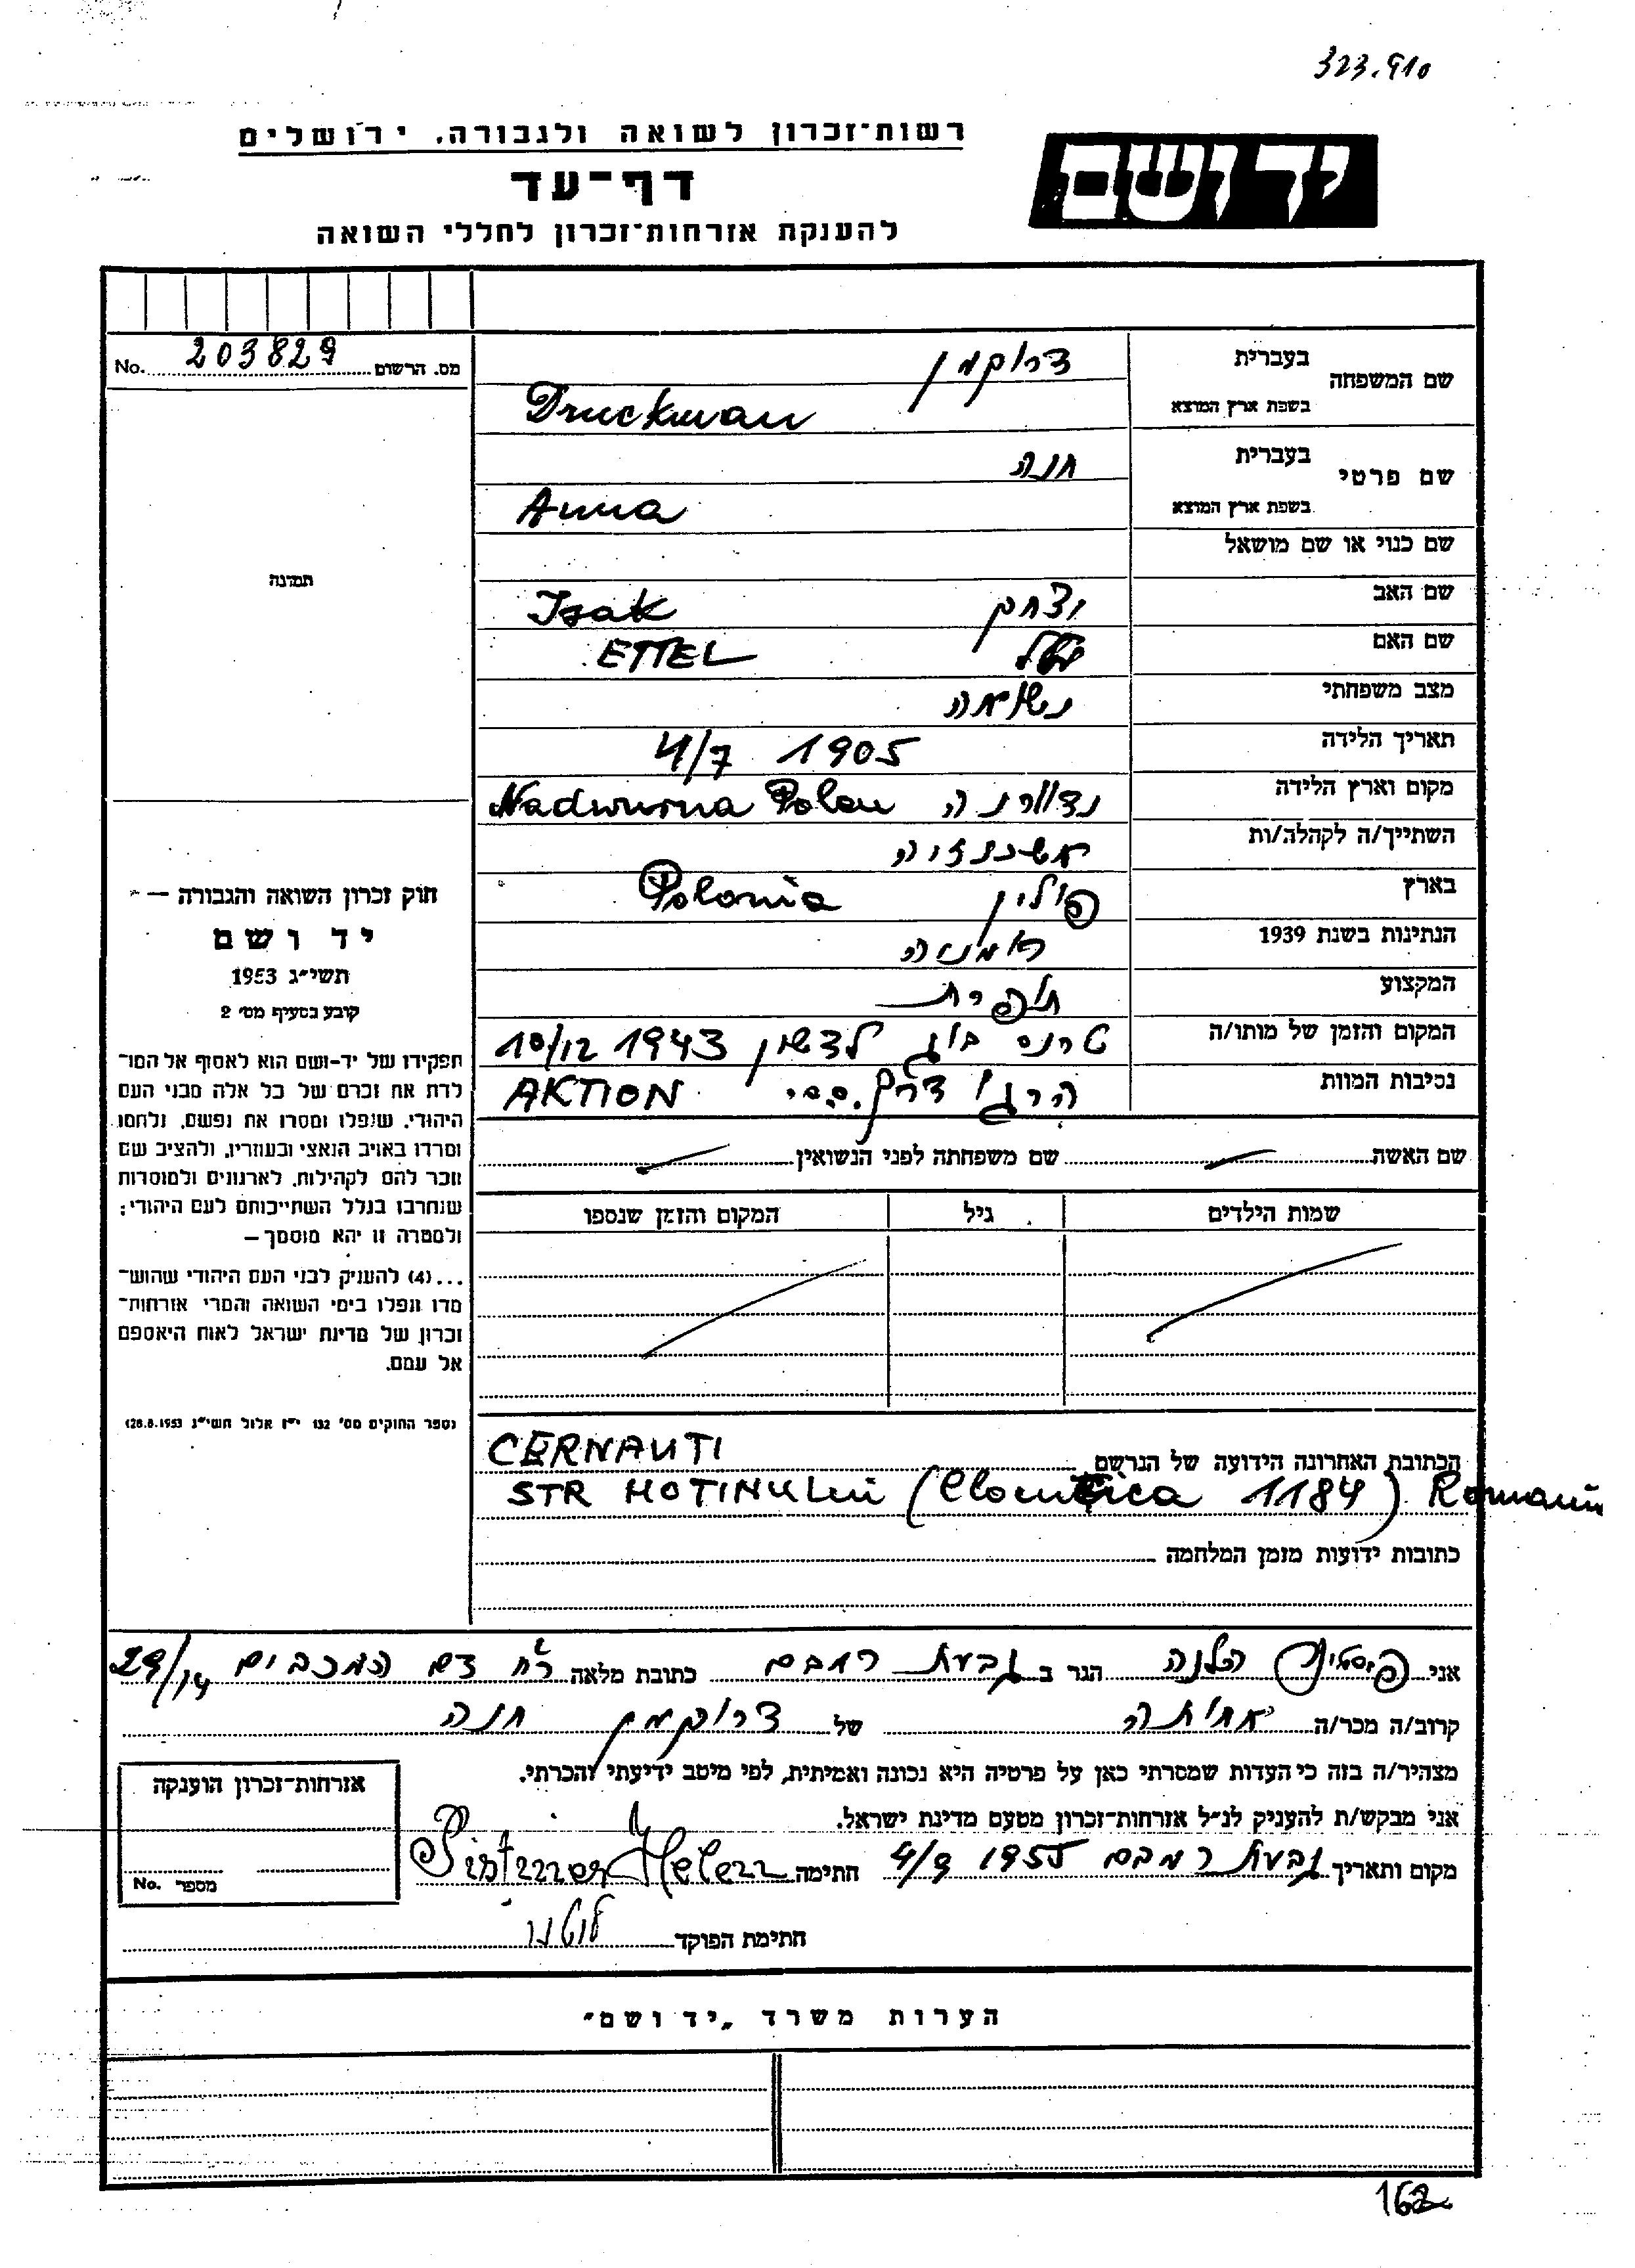 323.910
רשות-זכרון לשואה ולגבורה, ירושלים
יד ושם
דף-עד
להענקת אזרחות-זכרון לחללי השואה
מס. הרשום 203829 No.
שם המשפחה בעברית דרוקמן
בשפת ארץ המוצא Druckman
שם פרטי בעברית חנה
בשפת ארץ המוצא Anna
שם כנוי או שם מושאל
שם האב יצחק Isak
שם האם ETTEL
מצב משפחתי נשואה
תאריך הלידה 4/7 1905
מקום וארץ הלידה נדוורנה Nadwurna Polen
השתייך/ה לקהלה/ות אשכנזיה
בארץ פולין Polonia
הנתינות בשנת 1939 רומניה
המקצוע תופרת
המקום והזמן של מותו/ה טרנס לדשין 10/12 1943
נסיבות המוות AKTION
שם האשה שם משפחתה לפני הנשואין
שמות הילדים גיל המקום והזמן שנספו
תמונה
חוק זכרון השואה והגבורה —
יד ושם
תשי״ג 1953
קובע בסעיף מס׳ 2
תפקידו של יד-ושם הוא לאסוף אל המו־
לדת את זכרם של כל אלה מבני העם
היהודי, שנפלו ומסרו את נפשם, נלחמו
ומרדו באויב הנאצי ובעוזריו, ולהציב שם
וזכר להם לקהילות, לארגונים ולמוסדות
שנחרבו בגלל השתייכותם לעם היהודי;
ולמטרה זו יהא מוסמך —
...(4) להעניק לבני העם היהודי שהוש־
מדו ונפלו בימי השואה והמרי אזרחות־
זכרון של מדינת ישראל לאות היאספם
אל עמם.
(ספר החוקים מס׳ 132 י״ז אלול תשי״ג 28.8.1953)
הכתובת האחרונה הידועה של הנרשם CERNAUTI
STR HOTINului ( 1184) Romania
כתובות ידועות מזמן המלחמה
אני הלנה הגר ב גבעת רמבם כתובת מלאה רח דם המכבים 29/14
קרוב/ה מכר/ה אחותה של דרוקמן חנה
מצהיר/ה בזה כי העדות שמסרתי כאן על פרטיה היא נכונה ואמיתית, לפי מיטב ידיעתי והכרתי.
אני מבקש/ת להעניק לנ״ל אזרחות-זכרון מטעם מדינת ישראל.
מקום ותאריך גבעת רמבם 4/9 1955 חתימה Pistiner Helen
חתימת הפוקד
אזרחות-זכרון הוענקה
מספר No.
הערות משרד „יד ושם״
162